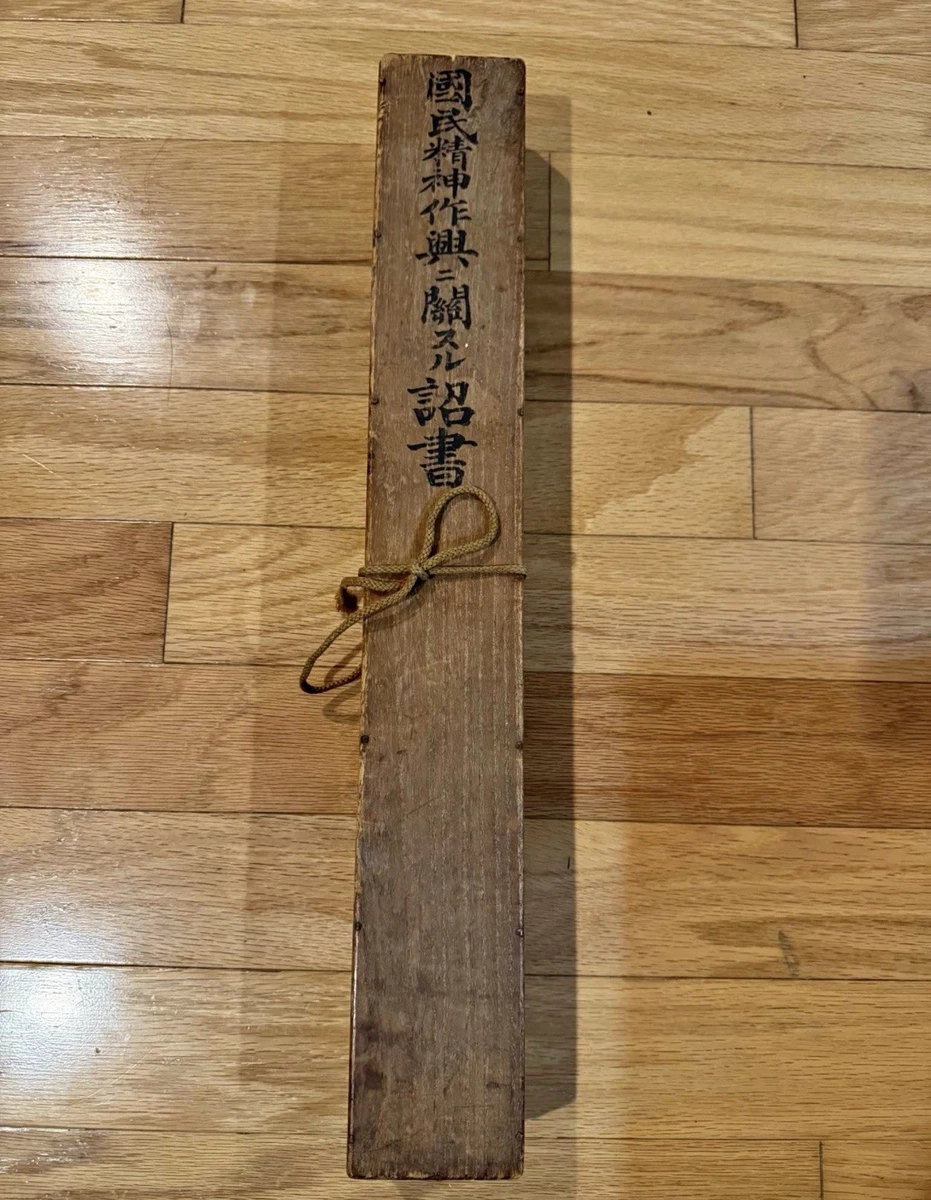 國民精神作興ニ關スル詔書